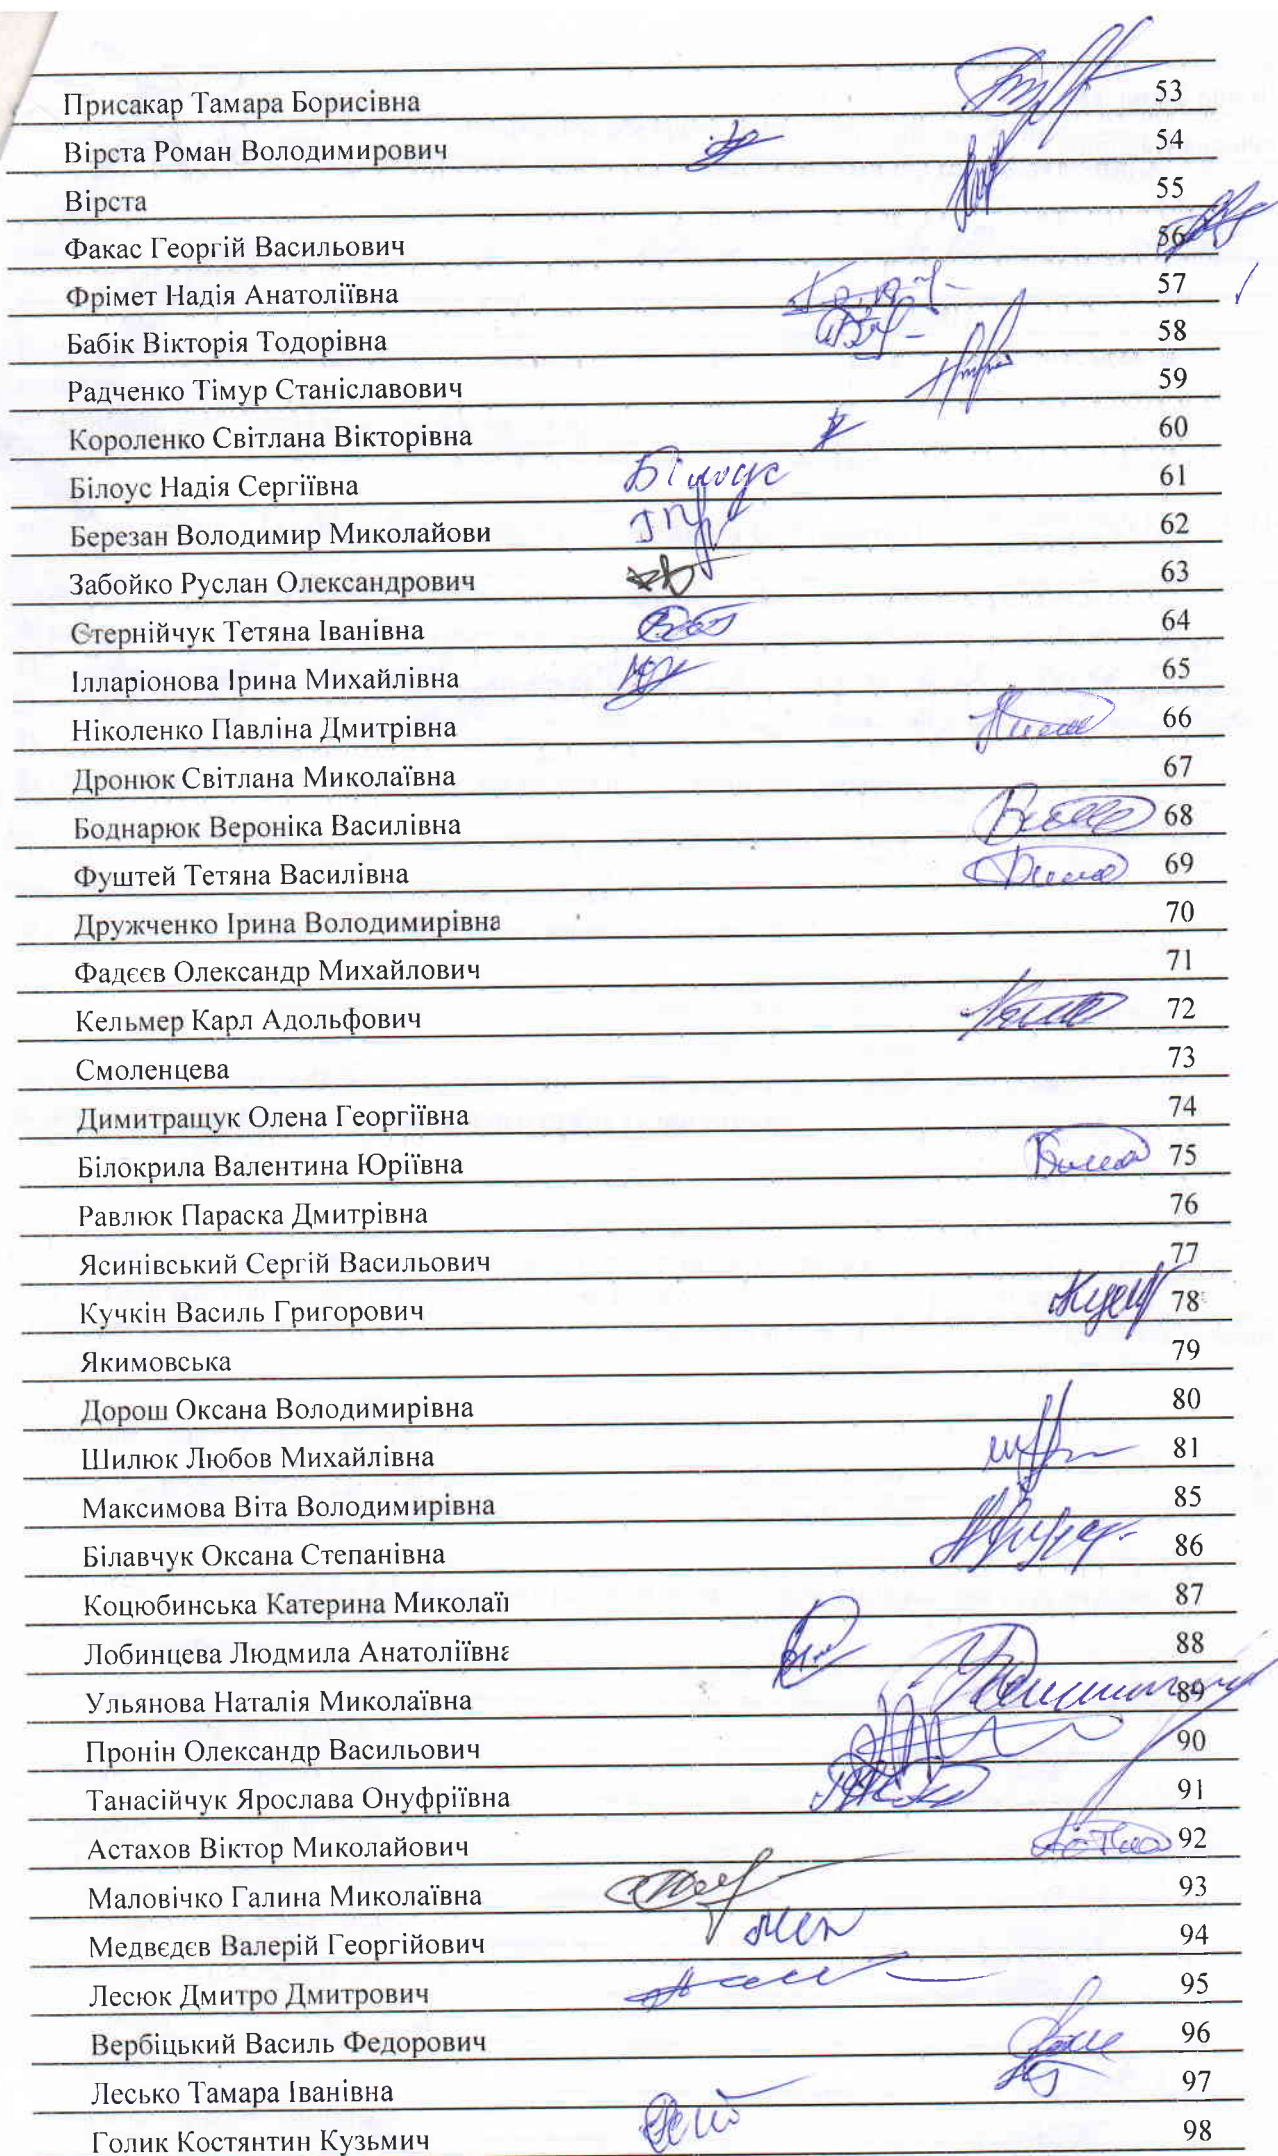 Присакар Тамара Борисівна 53
Вірста Роман Володимирович 54
Вірста 55
Факас Георгій Васильович 56
Фрімет Надія Анатоліївна 57
Бабік Вікторія Тодорівна 58
Радченко Тімур Станіславович 59
Короленко Світлана Вікторівна 60
Білоус Надія Сергіївна Білоус 61
Березан Володимир Миколайови 62
Забойко Руслан Олександрович 63
Стернійчук Тетяна Іванівна 64
Ілларіонова Ірина Михайлівна 65
Ніколенко Павліна Дмитрівна 66
Дронюк Світлана Миколаївна 67
Боднарюк Вероніка Василівна 68
Фуштей Тетяна Василівна 69
Дружченко Ірина Володимирівна 70
Фадєєв Олександр Михайлович 71
Кельмер Карл Адольфович 72
Смоленцева 73
Димитращук Олена Георгіївна 74
Білокрила Валентина Юріївна 75
Равлюк Параска Дмитрівна 76
Ясинівський Сергій Васильович 77
Кучкін Василь Григорович 78
Якимовська 79
Дорош Оксана Володимирівна 80
Шилюк Любов Михайлівна 81
Максимова Віта Володимирівна 85
Білавчук Оксана Степанівна 86
Коцюбинська Катерина Миколаї 87
Лобинцева Людмила Анатоліївна 88
Ульянова Наталія Миколаївна 89
Пронін Олександр Васильович 90
Танасійчук Ярослава Онуфріївна 91
Астахов Віктор Миколайович 92
Маловічко Галина Миколаївна 93
Медвєдєв Валерій Георгійович 94
Лесюк Дмитро Дмитрович 95
Вербіцький Василь Федорович 96
Лесько Тамара Іванівна 97
Голик Костянтин Кузьмич 98